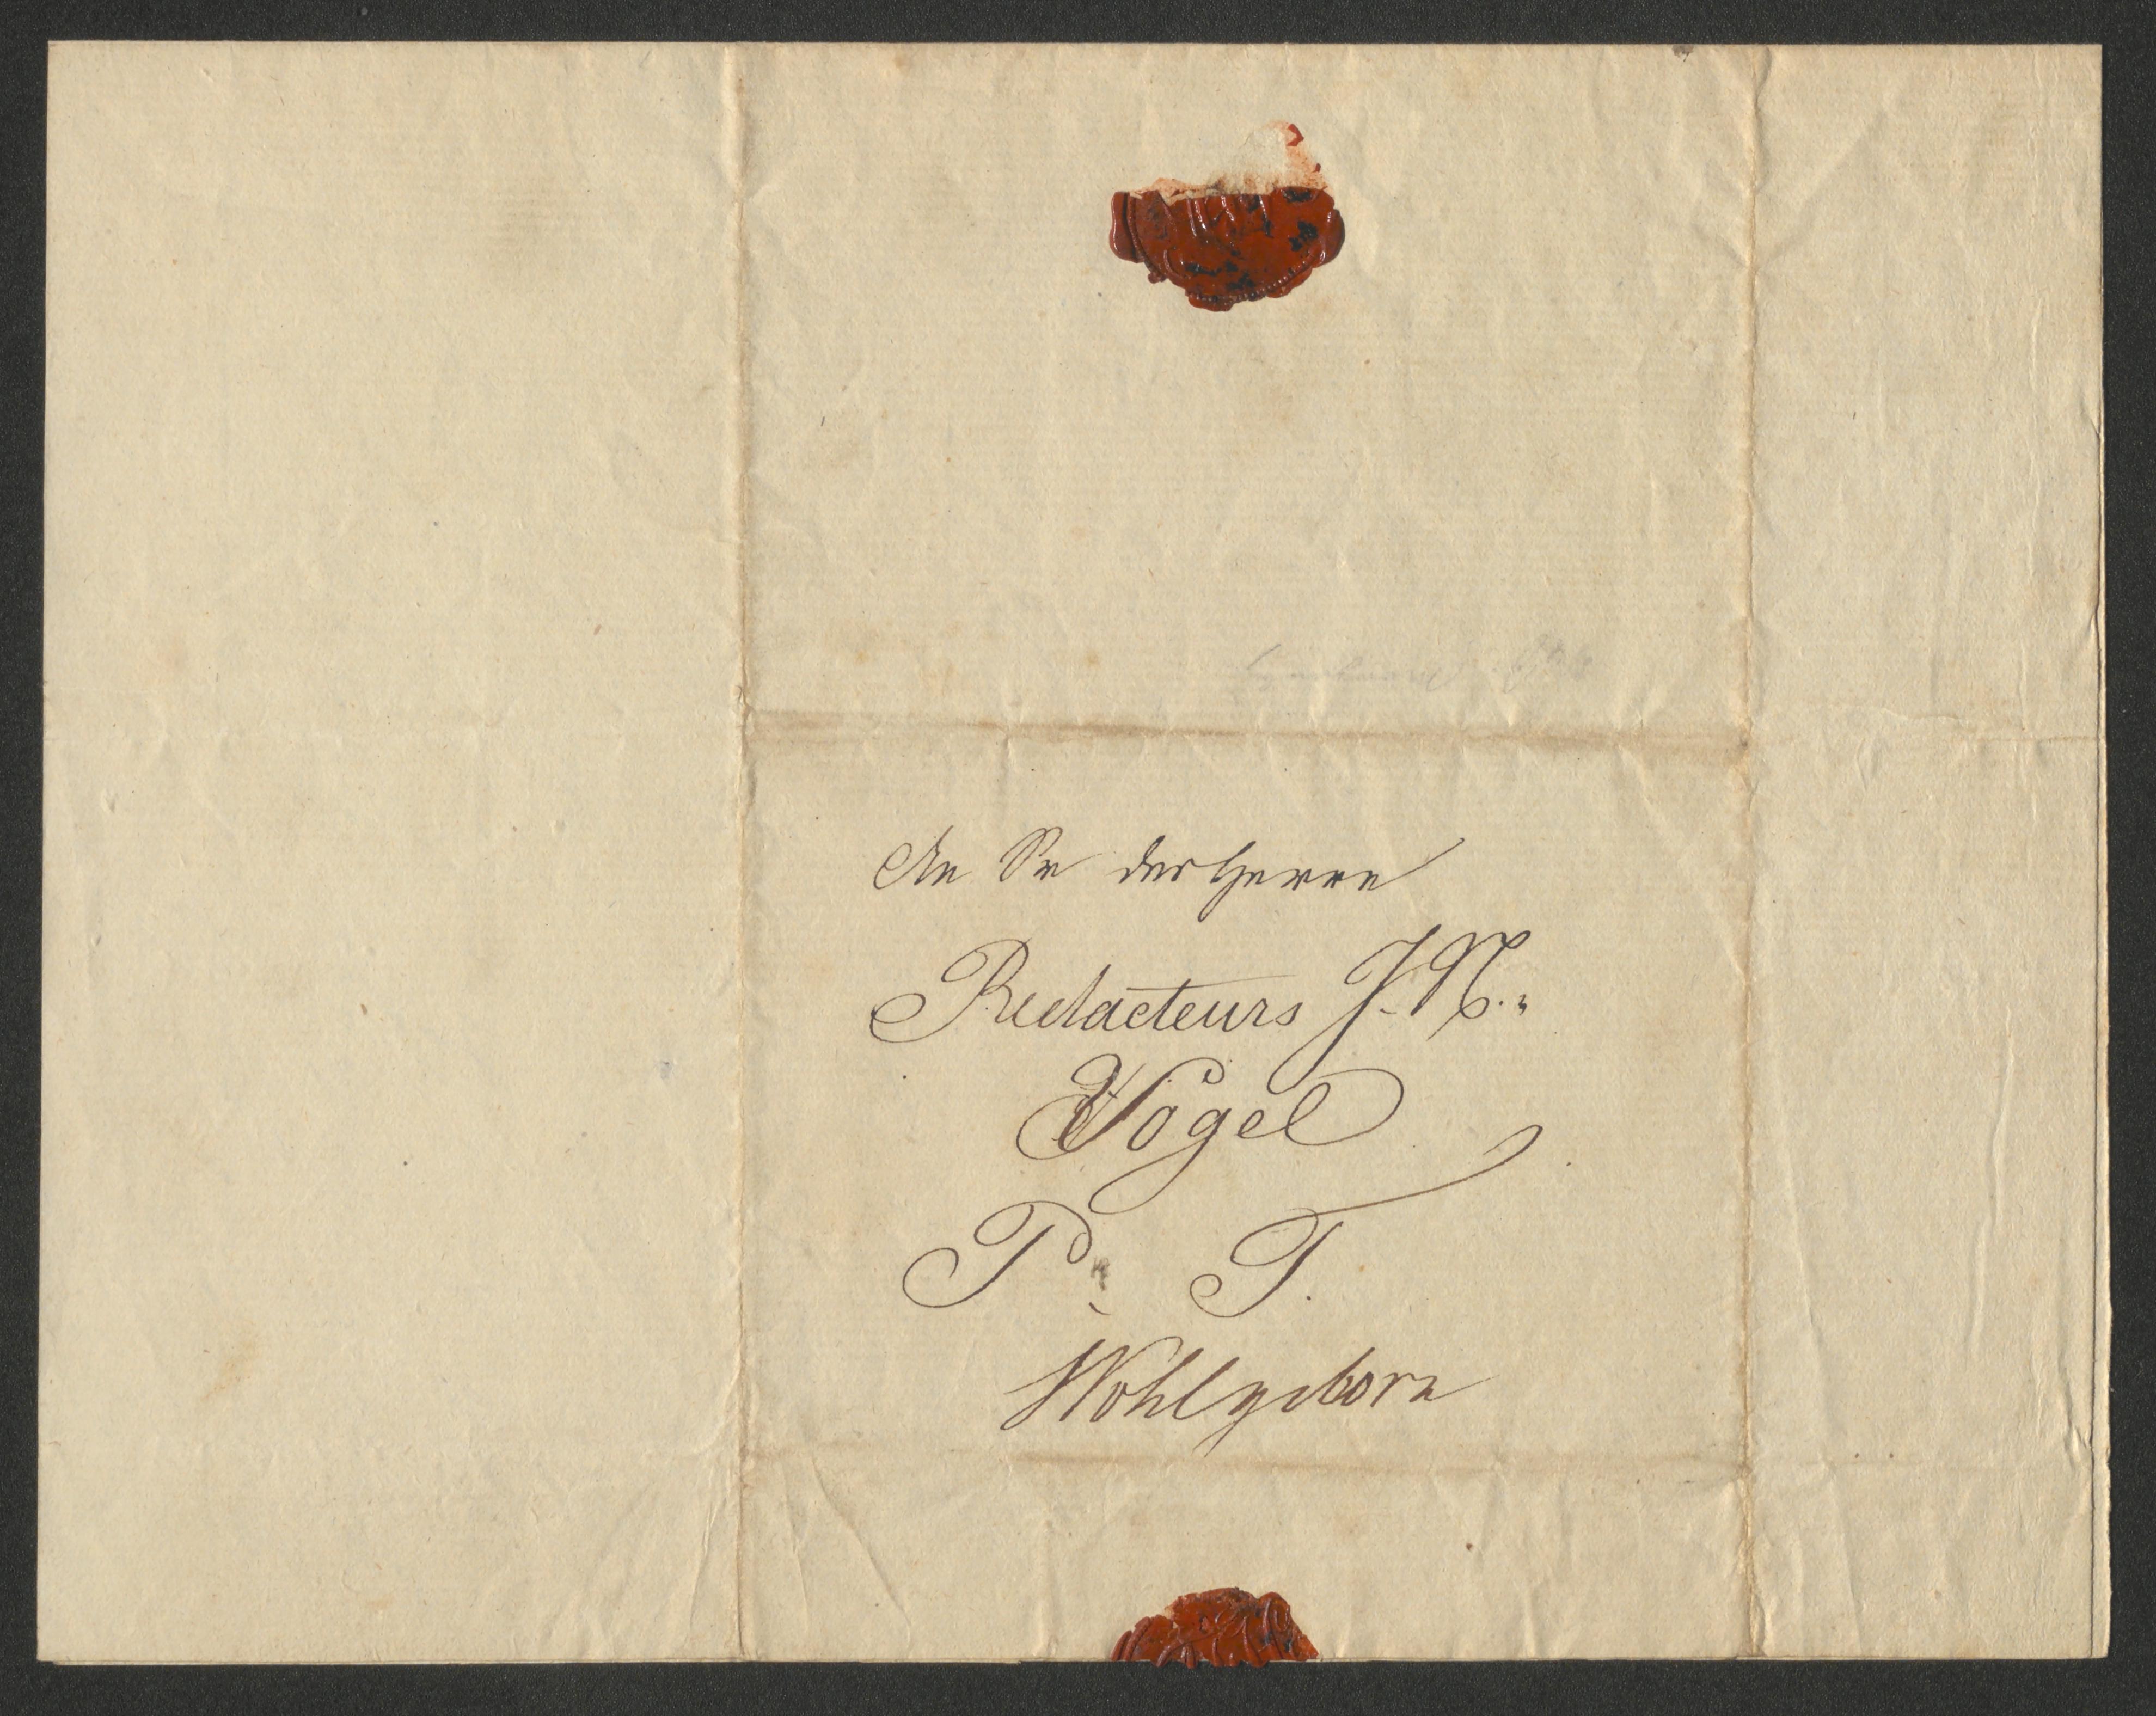 An Sr des Herrn
Redacteurs J. N.
Vogel
P. T.
Wohlgeborn